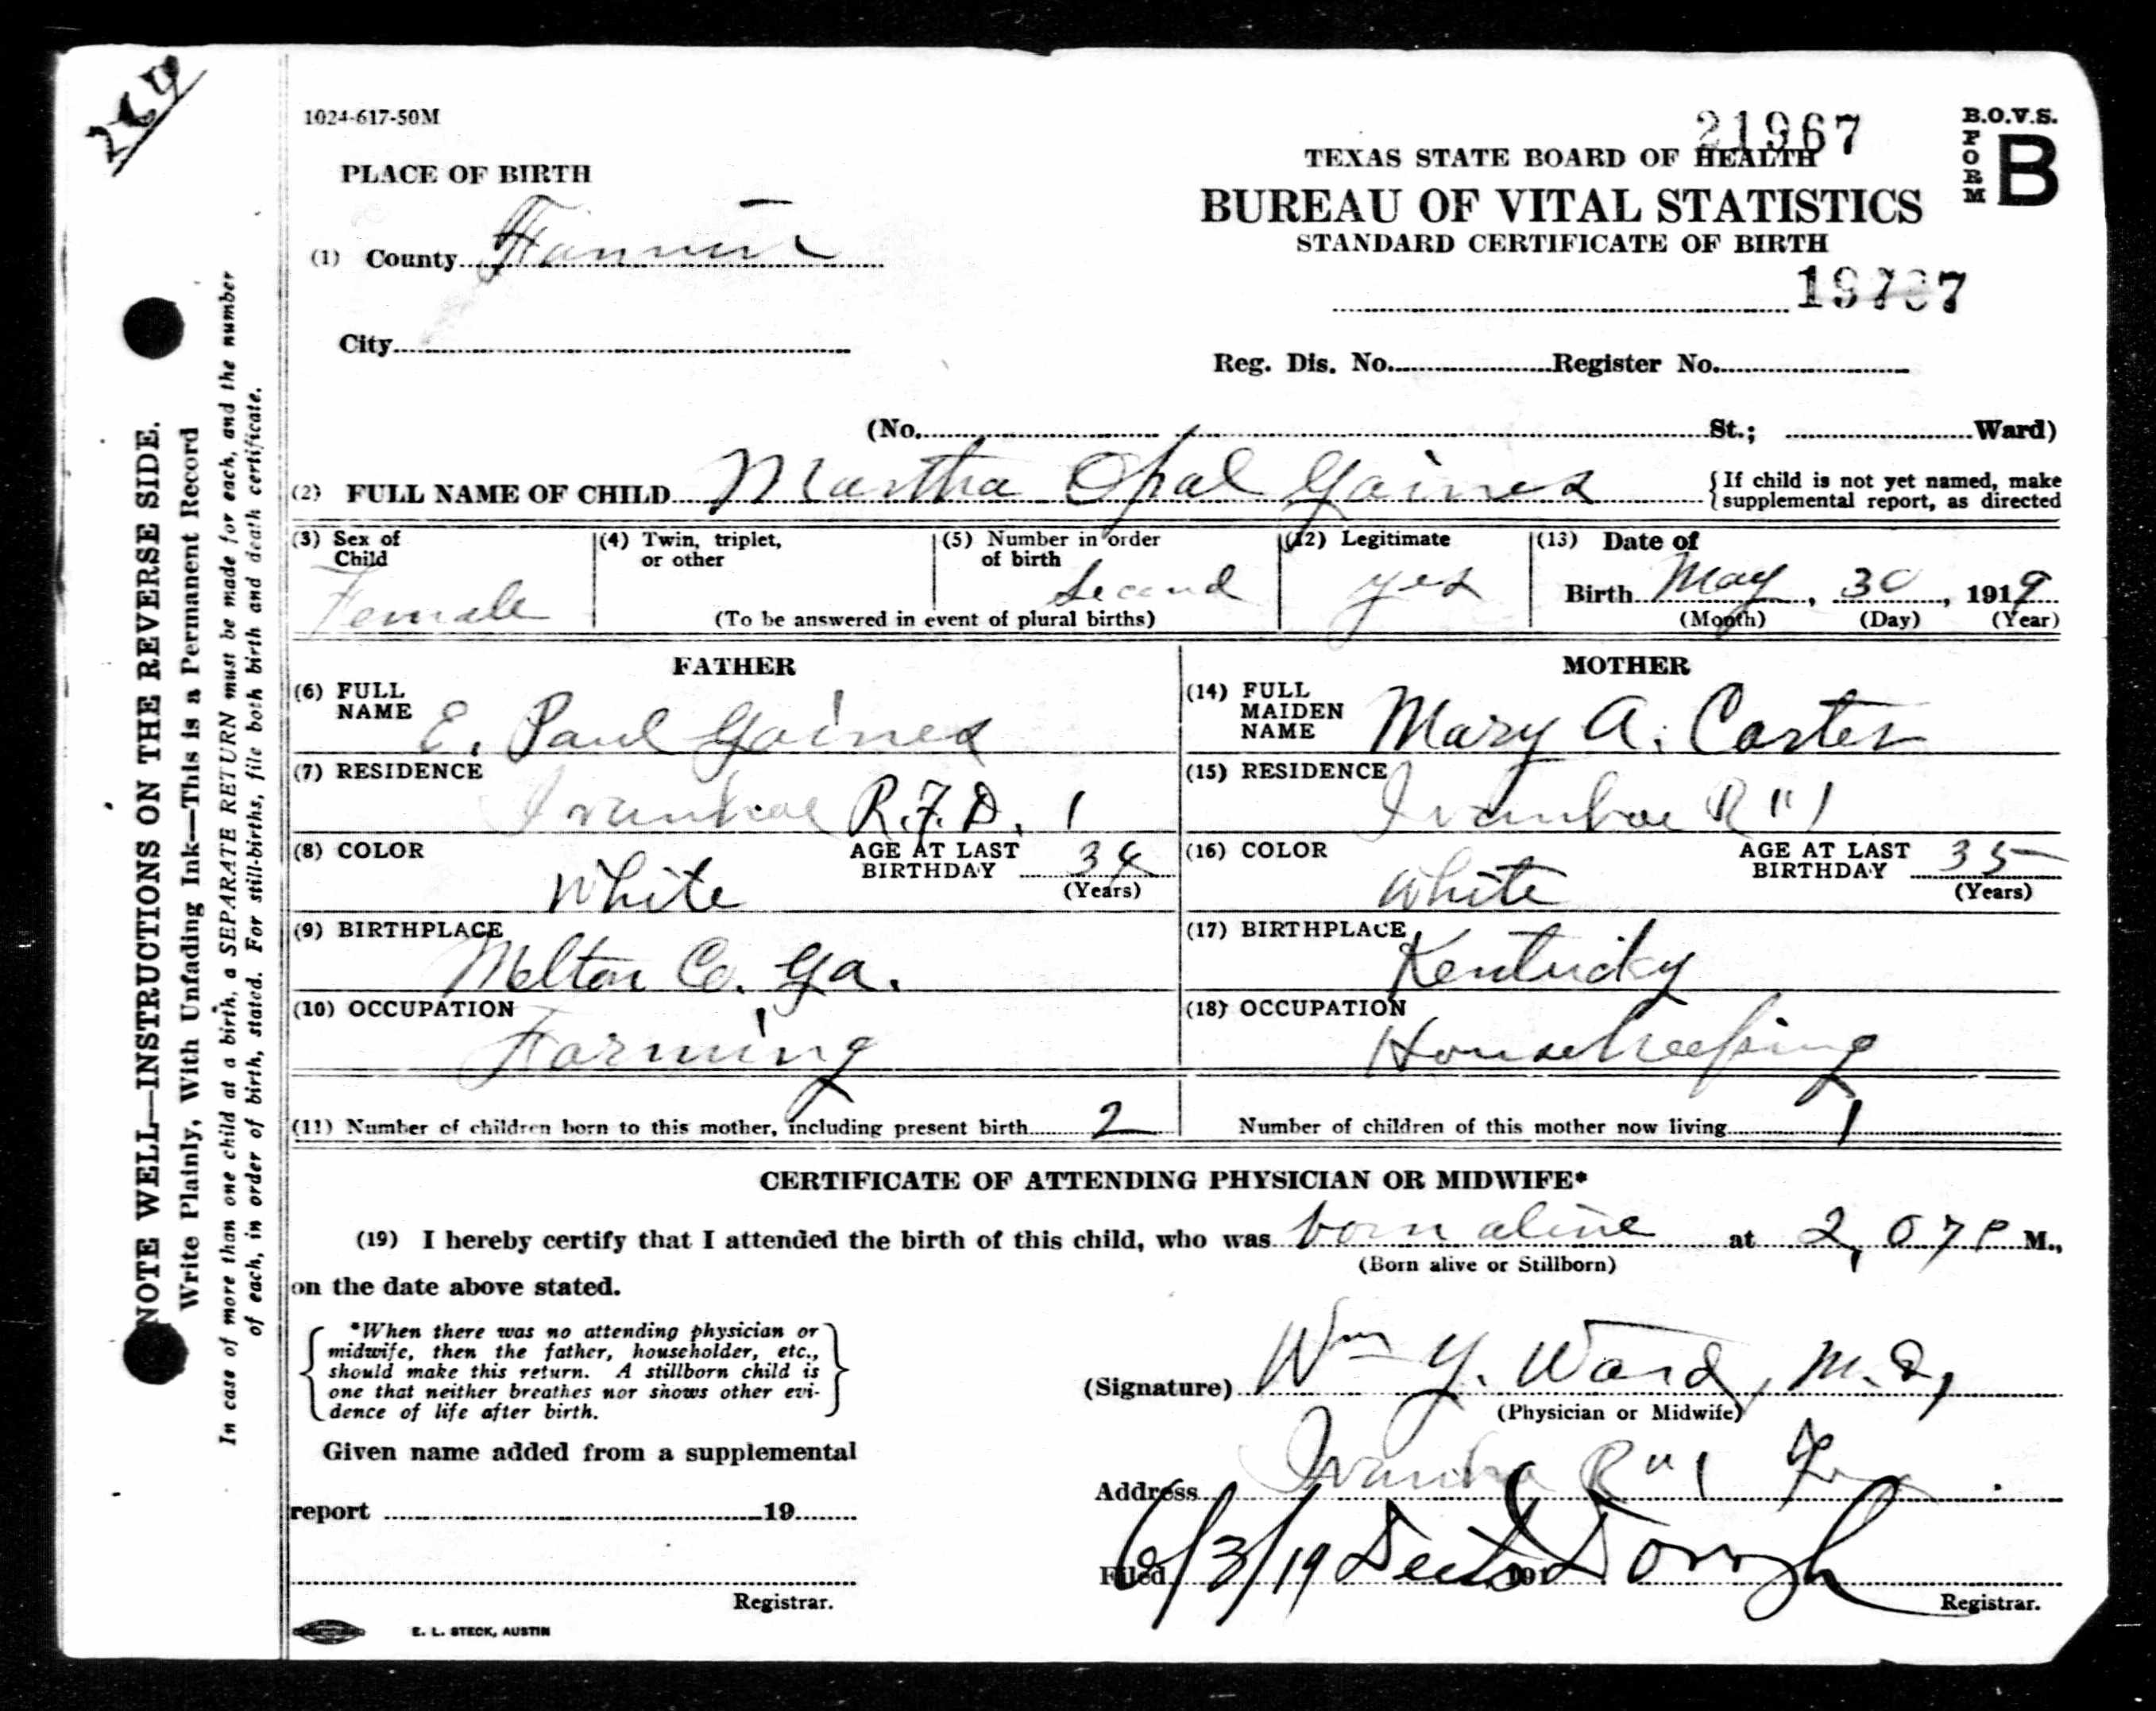 264
1024-617-50M
21967
B.O.V.S.
FORM B
PLACE OF BIRTH
TEXAS STATE BOARD OF HEALTH
BUREAU OF VITAL STATISTICS
STANDARD CERTIFICATE OF BIRTH
(1) County Fannin
City
Reg. Dis. No. Register No.
(No. St.; Ward)
(2) FULL NAME OF CHILD Martha Opal Gaines {If child is not yet named, make
supplemental report, as directed
(3) Sex of Child Female
(4) Twin, triplet, or other
(5) Number in order of birth Second
(To be answered in event of plural births)
(12) Legitimate yes
(13) Date of
Birth May, 30, 1919
(Month) (Day) (Year)
FATHER
(6) FULL NAME E. Paul Gaines
(7) RESIDENCE Ivanhoe R.F.D. 1
(8) COLOR White AGE AT LAST BIRTHDAY 34 (Years)
(9) BIRTHPLACE Melton Co. Ga.
(10) OCCUPATION Farming
MOTHER
(14) FULL MAIDEN NAME Mary A. Carter
(15) RESIDENCE Ivanhoe R "1
(16) COLOR White AGE AT LAST BIRTHDAY 35 (Years)
(17) BIRTHPLACE Kentucky
(18) OCCUPATION Housekeeping
(11) Number of children born to this mother, including present birth 2 Number of children of this mother now living 1
CERTIFICATE OF ATTENDING PHYSICIAN OR MIDWIFE*
(19) I hereby certify that I attended the birth of this child, who was born alive at 2,07 P M.,
(Born alive or Stillborn)
on the date above stated.
*When there was no attending physician or
midwife, then the father, householder, etc.,
should make this return. A stillborn child is
one that neither breathes nor shows other evi-
dence of life after birth.
(Signature) Wm Y. Ward, M.D,
(Physician or Midwife)
Given name added from a supplemental
report 19
Registrar.
Address Ivanhoe R "1
Filed 6/3/19 191
Registrar.
E. L. STECK, AUSTIN
NOTE WELL—INSTRUCTIONS ON THE REVERSE SIDE.
Write Plainly, With Unfading Ink—This is a Permanent Record
In case of more than one child at a birth, a SEPARATE RETURN must be made for each, and the number
of each, in order of birth, stated. For still-births, file both birth and death certificate.